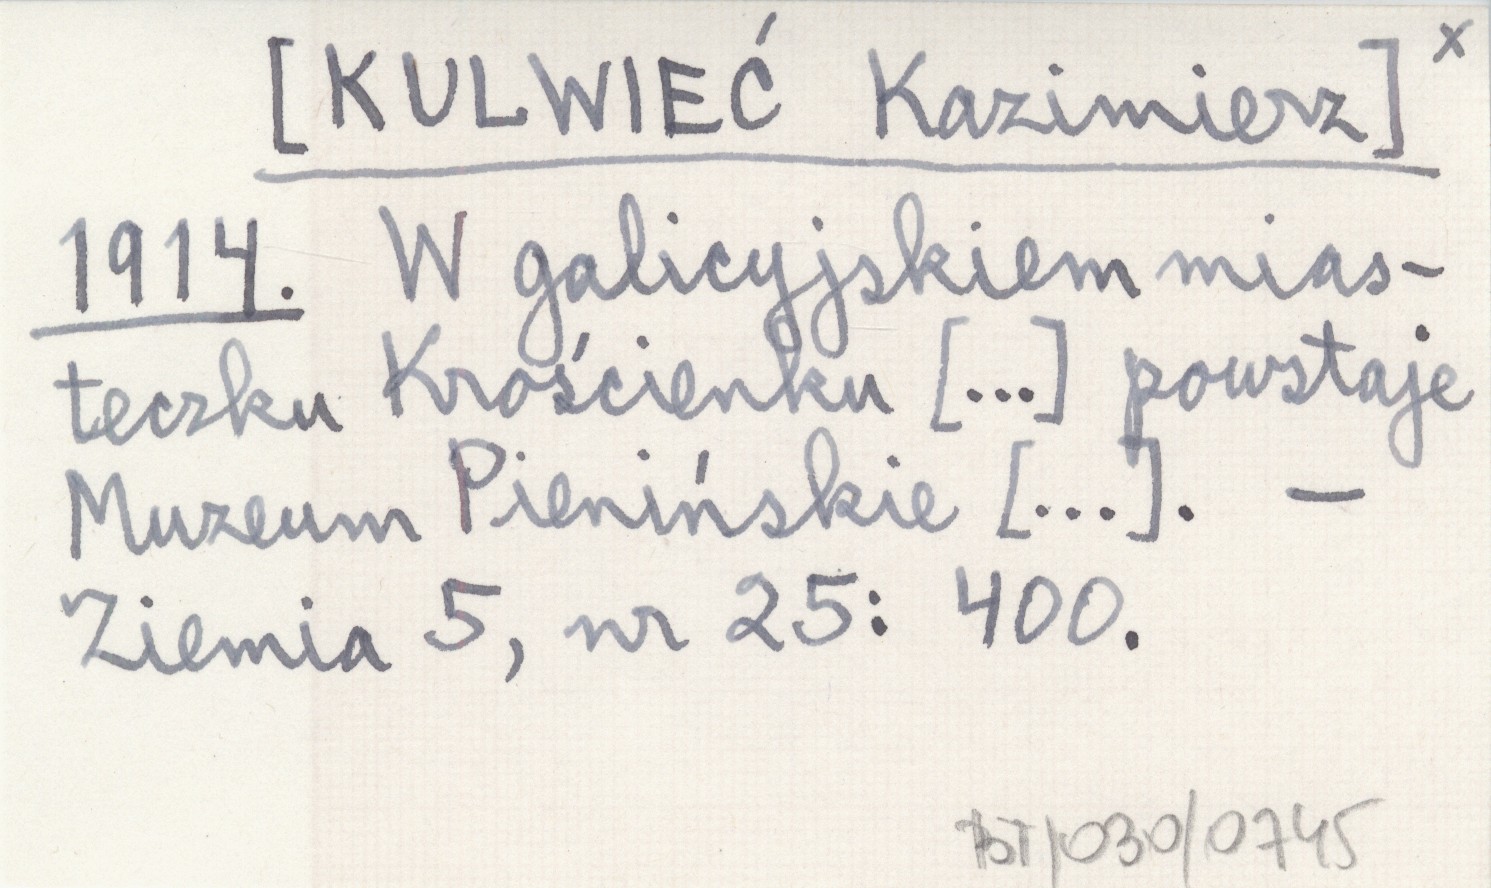 [KULWIEĆ Kazimierz] x
1914. W galicyjskiem mias-
teczku Krościenku [...] powstaje
Muzeum Pienińskie [...]. —
Ziemia 5, nr 25: 400.
BT/030/0745